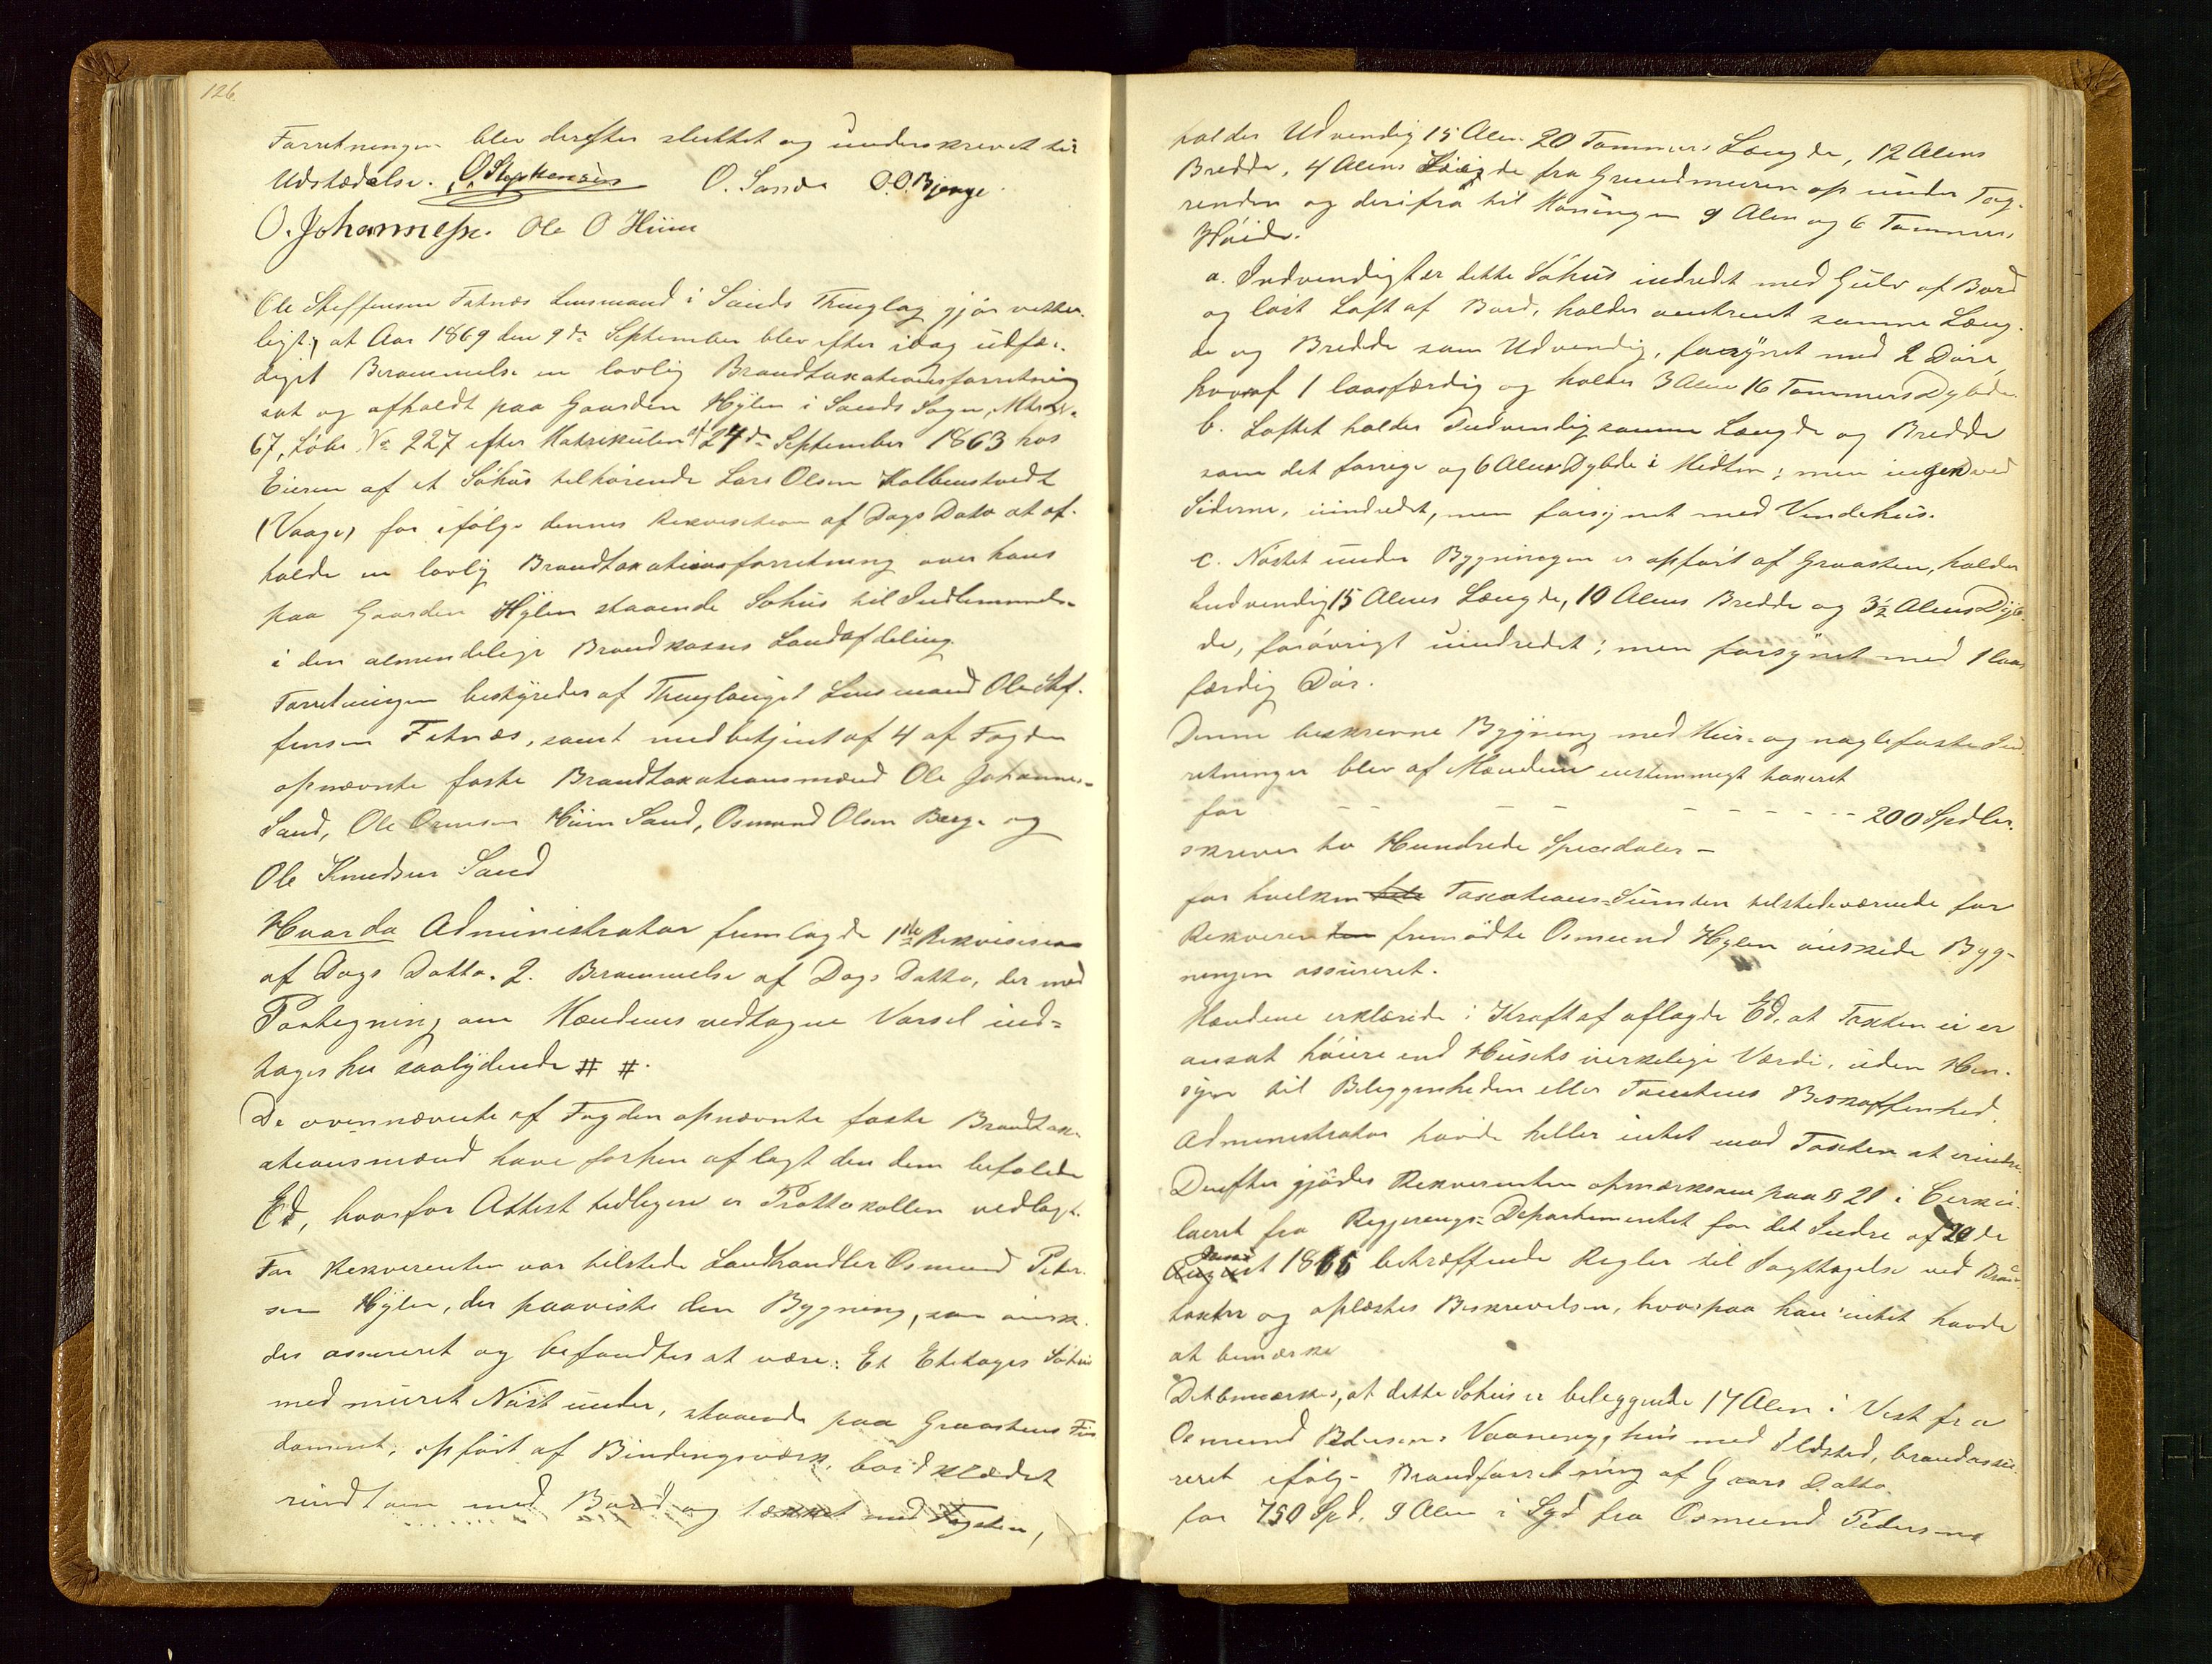 126.
Forretningen blev derefter sluttet og underskrevet til
Udstædelse. O. Stephensen O. Sande O.O. Bjerge.
O. Johannesse. Ole O Hiim
Ole Steffensen Fatnæs Lensmand i Sands Thinglag gjör vitter-
ligt; at Aar 1869 den 9de September blev efter idag udfær-
diget Berammelse en lovlig Brandtaxationsforretning
sat og afholdt paa Gaarden Hylen i Sands Sogn, Mtr No
67, Löbe No 227 efter Matrikulen af 24de September 1863 hos
Eieren af et Söhus tilhörende Lars Olsen Kolbenstvedt
(Vaage) for ifölge dennes Rekvisition af Dags Dato at af-
holde en lovlig Brandtaxationsforretning over hans
paa Gaarden Hylen staaende Söhus til Indlemmelse
i den almindelige Brandkasses Landafdeling.
Forretningen bestyredes af Thinglaugets Lensmand Ole Stef-
fensen Fatnæs, samt med betjent af 4 af Fogden
opnævnte faste Brandtaxationsmænd Ole Johannes-
Sand, Ole Ormsen Hiim Sand, Osmund Olsen Berge og
Ole Knudsen Sand
Hvor da Administrator fremlagde 1ste Rekvisision
af Dags Datto. 2. Berammelse af Dags Datto, der med
Paategning om Mændenes vedtagne Varsel ind-
tages her saalydende # #.
De ovennævnte af Fogden opnævnte faste Brandtax-
ationsmænd have forhen aflagt den dem befalede
Ed, hvorfor Attest tidligere er Prottokollen vedlagt.
For Rekverenten var tilstede Landhandler Osmund Peter-
sen Hylen, der paaviste den Bygning, som önsk-
des assureret og befandtes at være: Et Etetages Söhus
med muret Nöst under, staaende paa Graastens Fun
dament, opfört af Bindingsværk, bordklædet
rundt om med Bord og tækket med Tagsten,
holder Udvendig 15 Alen 20 Tommers Længde, 12 Alens
Bredde, 4 Alens Höide fra Grundmuren op under Tag-
renden og derifra til Möningen 9 Alen og 6 Tommers
Höide.
a. Indvendigt er dette Söhus indredt med Gulv af Bord
og löst Loft af Bord, holder omtrent samme Læng-
de og Bredde som Udvendig, forsynet med 2 Döre,
hvoraf 1 laasfærdig og holder 3 Alen 16 Tommers Dybde
b. Loftet holder Indvendig samme Længde og Bredde
som det forrige og 6 Alens Dybde i Midten; men ingen ved
Siderne, uindredt, men forsynet med Vindehus.
c. Nöstet under Bygningen er opfört af Graasten, holder
Indvendig 15 Alens Længde, 10 Alens Bredde og 3½ Alens Dyb
de, forövrigt uindredet; men forsynet med 1 laas
færdig Dör.
Denne beskrevne Bygning med Mur- og naglefaste Ind
retninger blev af Mændene enstemmigt taxeret
for - - - - - - - - - 200 Spdlr.
skriver to Hundrede Speciedaler -
for hvilken Taxations-Sum den tilstedeværende for
Rekverenten fremödte Osmund Hylen önskede Byg-
ningen assureret.
Mændene erklærede i Kraft af aflagde Ed, at Taxten ei er
ansat höiere end Husets virkelige Værdi, uden Hen-
syn til Beliggenheden eller Tomtens Beskaffenhed.
Administrator havde heller intet mod Taxten at erindre.
Derefter gjördes Rekverenten opmærksom paa § 21 i Cirku-
læret fra Regjerings-Departementet for det Indre af 20de
Juni 1866 betræffende Regler til Iagttagelse ved Brand
taxter og oplæstes Beskrivelsen, hvorpaa han intet havde
at bemærke
Det bemærkes, at dette Söhus er beliggende 17 Alen i Vest fra
Osmund Petersens Vaaningshus med Ildsted, brandassu-
reret ifölge Brandforretning af Gaars Datto
for 750 Spd, 9 Alen i Syd fra Osmund Pedersens